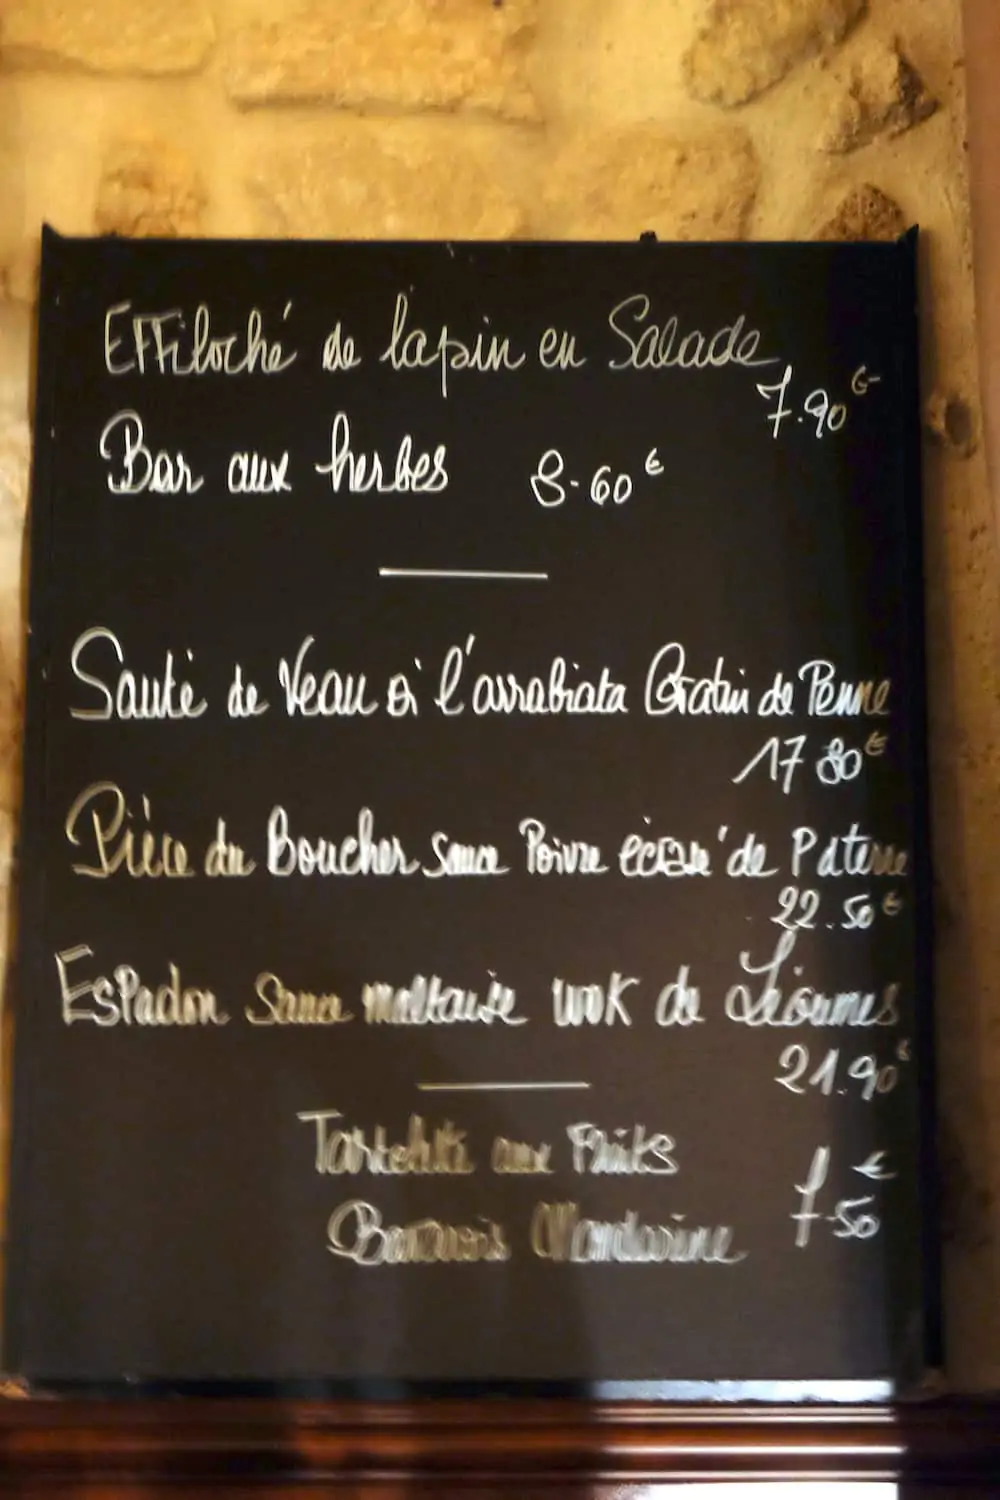 Effiloché de lapin en Salade
7.90€
Bar aux herbes 8.60€
Sauté de Veau à l'arrabiata Gratin de Penne
17 80€
Pièce du Boucher sauce Poivre écrasé de P de terre
22.50€
Espadon Sauce maltaise wok de Légumes
21.90€
Tartelette aux Fruits
7.50 €
Bavarois Mandarine